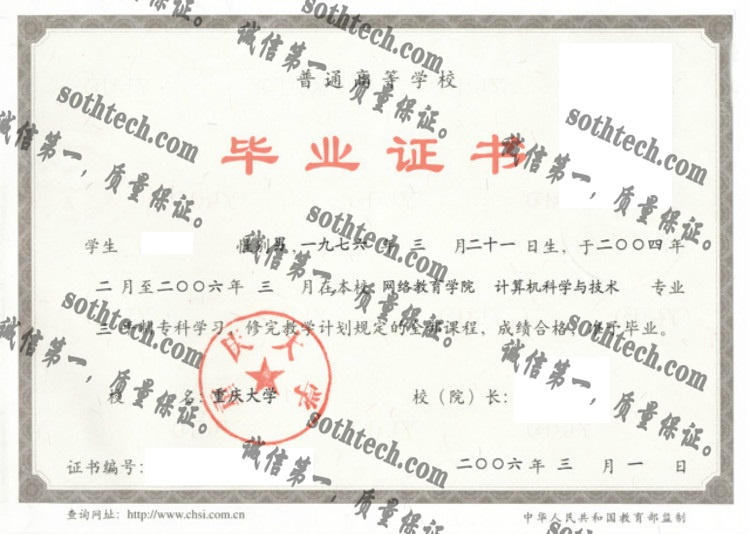 普通高等学校
毕业证书
学生 性别男 一九七六 年 三 月二十一日生，于二〇〇四年
二月至二〇〇六年 三 月在本校 网络教育学院 计算机科学与技术 专业
三年制专科学习，修完教学计划规定的全部课程，成绩合格，准予毕业。
校 名：重庆大学 校（院）长：
重庆大学
证书编号： 二〇〇六年 三 月 一 日
查询网址：http://www.chsi.com.cn 中华人民共和国教育部监制
sothtech.com
诚信第一，质量保证。
sothtech.com
诚信第一，质量保证。
sothtech.com
诚信第一，质量保证。
sothtech.com
诚信第一，质量保证。
sothtech.com
诚信第一，质量保证。
sothtech.com
诚信第一，质量保证。
sothtech.com
诚信第一，质量保证。